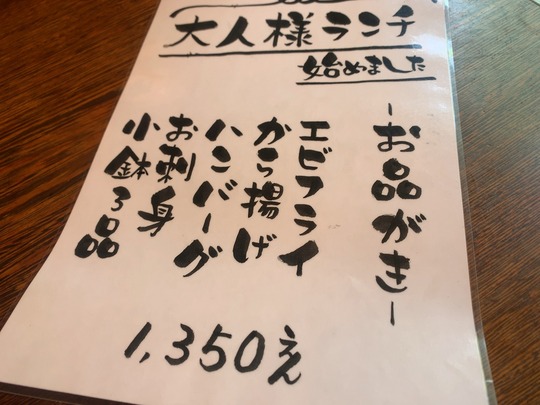 大人様ランチ
始めました
-お品がき-
エビフライ
から揚げ
ハンバーグ
お刺身
小鉢3品
1,350えん